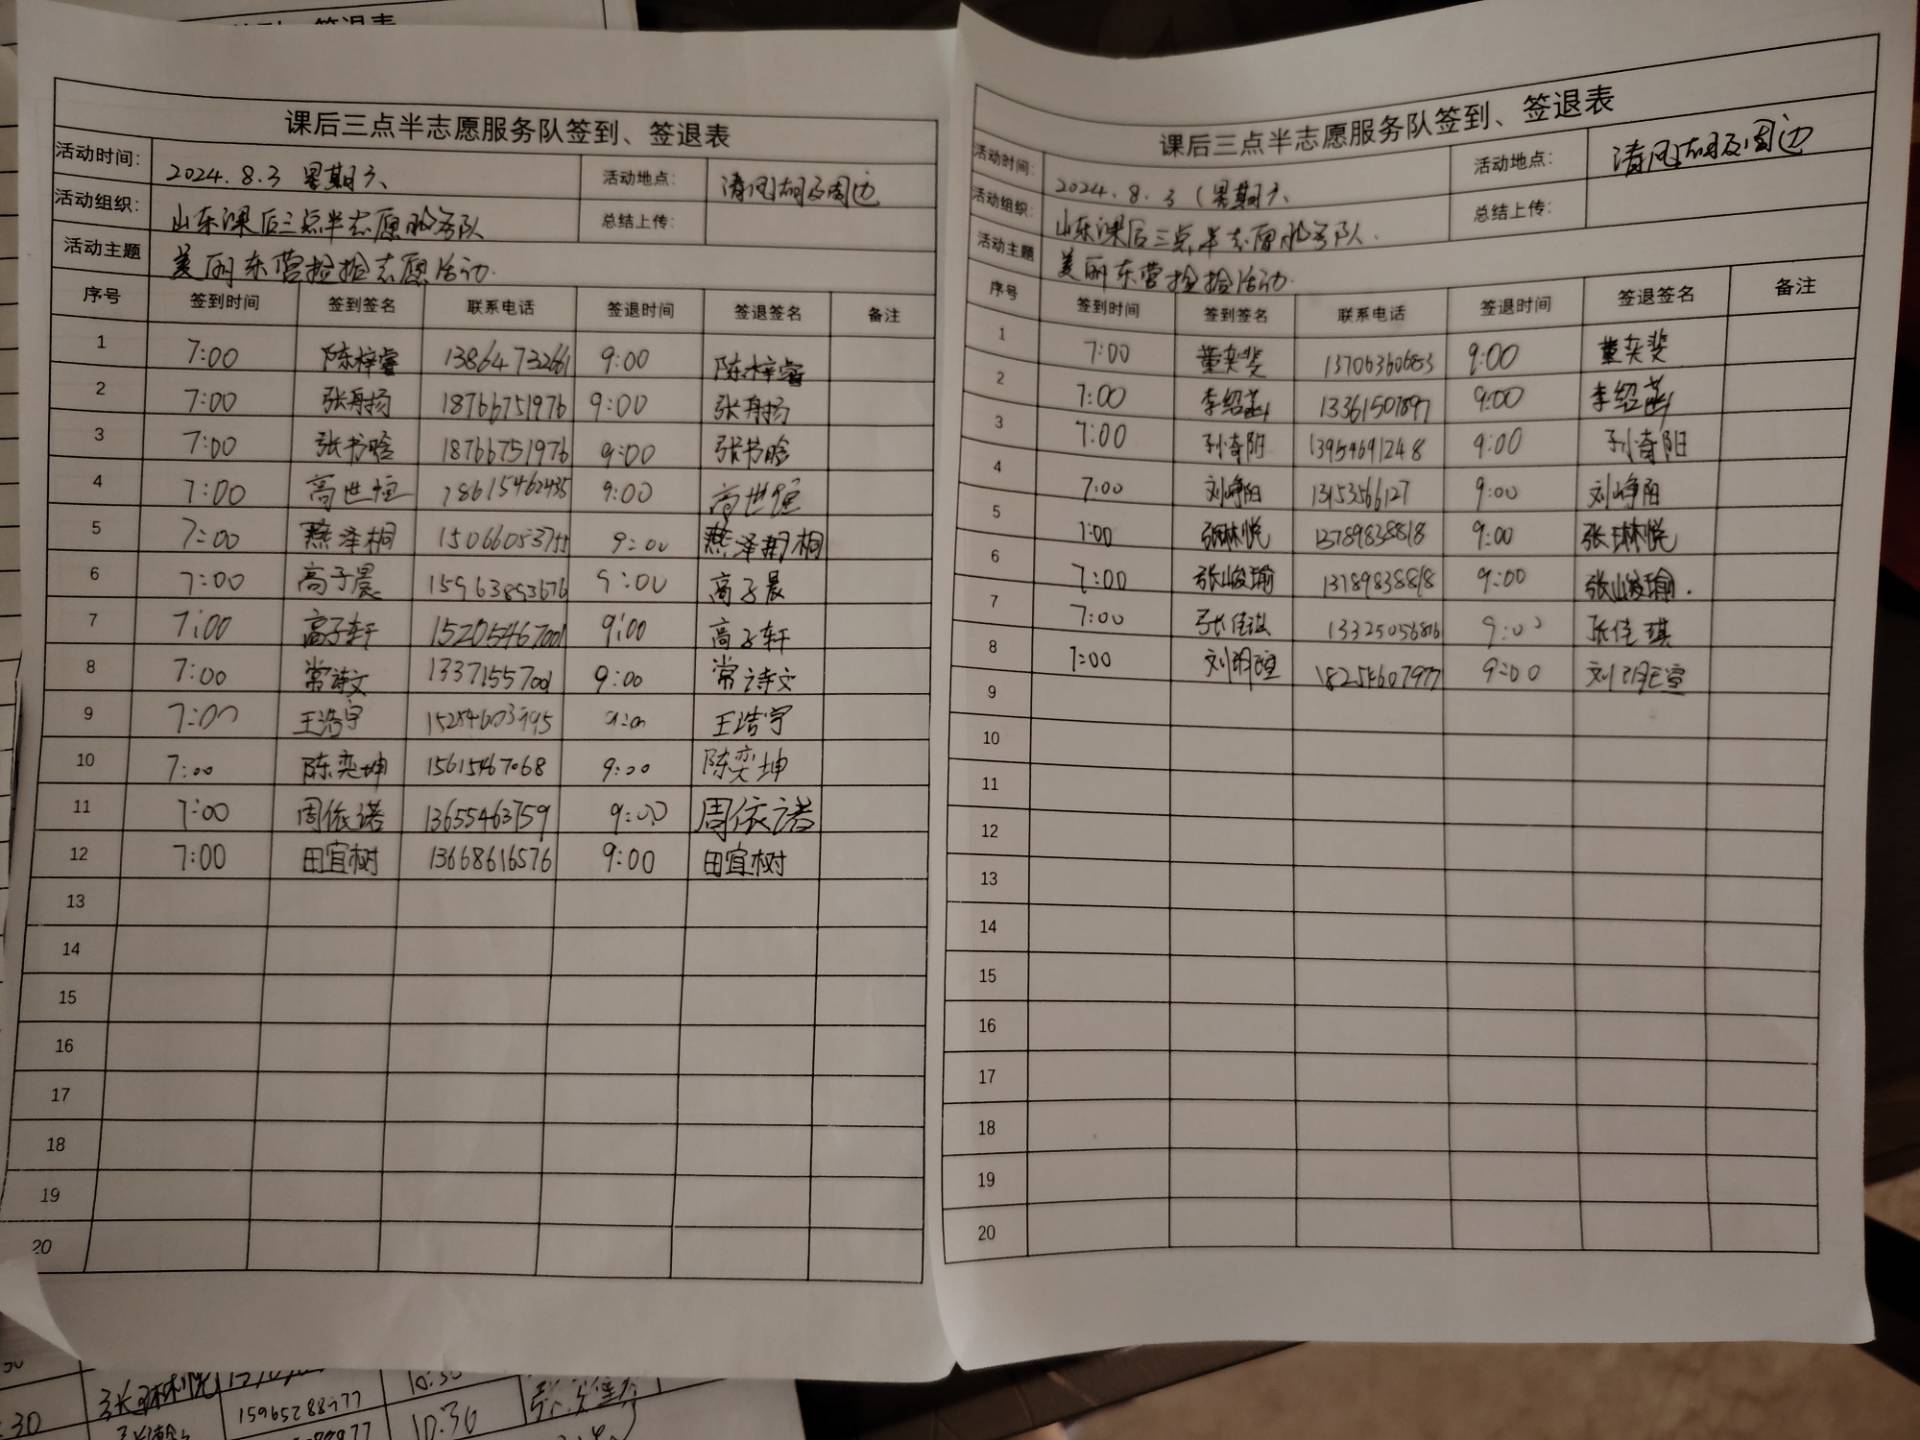 课后三点半志愿服务队签到、签退表
活动时间: 2024.8.3 星期六 活动地点: 清风湖及周边
活动组织: 山东课后三点半志愿服务队 总结上传:
活动主题 美丽东营捡捡志愿活动.
序号 签到时间 签到签名 联系电话 签退时间 签退签名 备注
1 7:00 陈梓睿 13864732661 9:00 陈梓睿
2 7:00 张舟扬 18766751976 9:00 张舟扬
3 7:00 张书晗 18766751976 9:00 张书晗
4 7:00 高世恒 18615462435 9:00 高世恒
5 7:00 燕泽桐 9:00 燕泽桐
6 7:00 高子晨 15963893676 9:00 高子晨
7 7:00 高子轩 15205467001 9:00 高子轩
8 7:00 常诗文 13371557001 9:00 常诗文
9 7:00 王浩宇 9:00 王浩宇
10 7:00 陈奕坤 15615467068 9:00 陈奕坤
11 7:00 周依诺 13655463759 9:00 周依诺
12 7:00 田宜树 13668616576 9:00 田宜树
13
14
15
16
17
18
19
20
课后三点半志愿服务队签到、签退表
活动时间: 2024.8.3 (星期六 活动地点: 清风湖及周边
活动组织: 山东课后三点半志愿服务队. 总结上传:
活动主题 美丽东营捡捡活动.
序号 签到时间 签到签名 联系电话 签退时间 签退签名 备注
1 7:00 董奕斐 13706360683 9:00 董奕斐
2 7:00 李绍菡 13361507897 9:00 李绍菡
3 7:00 孙奇阳 13954691248 9:00 孙奇阳
4 7:00 刘峥阳 9:00 刘峥阳
5 7:00 张琳悦 13789838818 9:00 张琳悦
6 7:00 张峻瑜 13789838818 9:00 张峻瑜.
7 7:00 张佳琪 13325056816 9:00 张佳琪
8 7:00 刘玥萱 18254607977 9:00 刘玥萱
9
10
11
12
13
14
15
16
17
18
19
20
张琳悦
30 15965288977 10:30